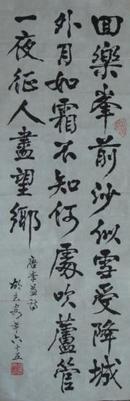 回樂峯前沙似雪受降城
外月如霜不知何處吹蘆管
一夜征人盡望鄉
唐李益詩
年六十五